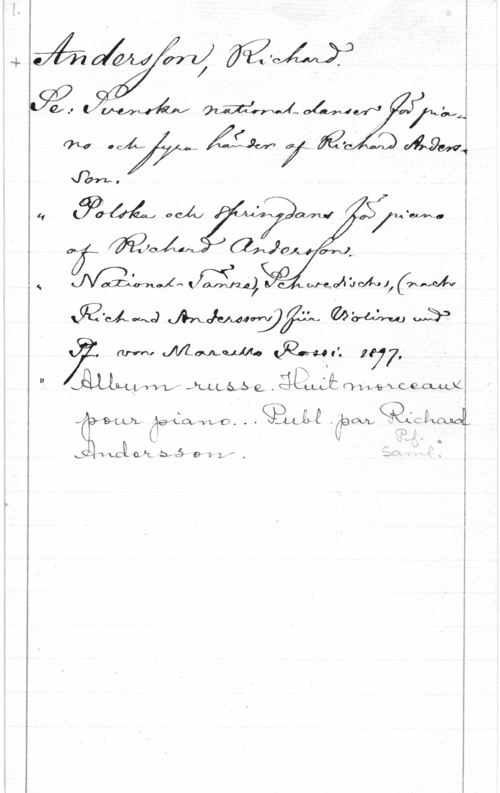 1.
+ Andersson, Richard.
Se: Svenska national-danser för pia-
no och fyra händer af Richard Anders-
son.
" Polska och springdans för piano
af Richard Andersson.
" National-Tänze, Schwedische, (nach
Richard Andersson) für Violine und
Pf. von Marcello Rossi. 1897.
" Album russe. Huit morceaux
pour piano... Publ. par Richard
Andersson. Pf. Saml.